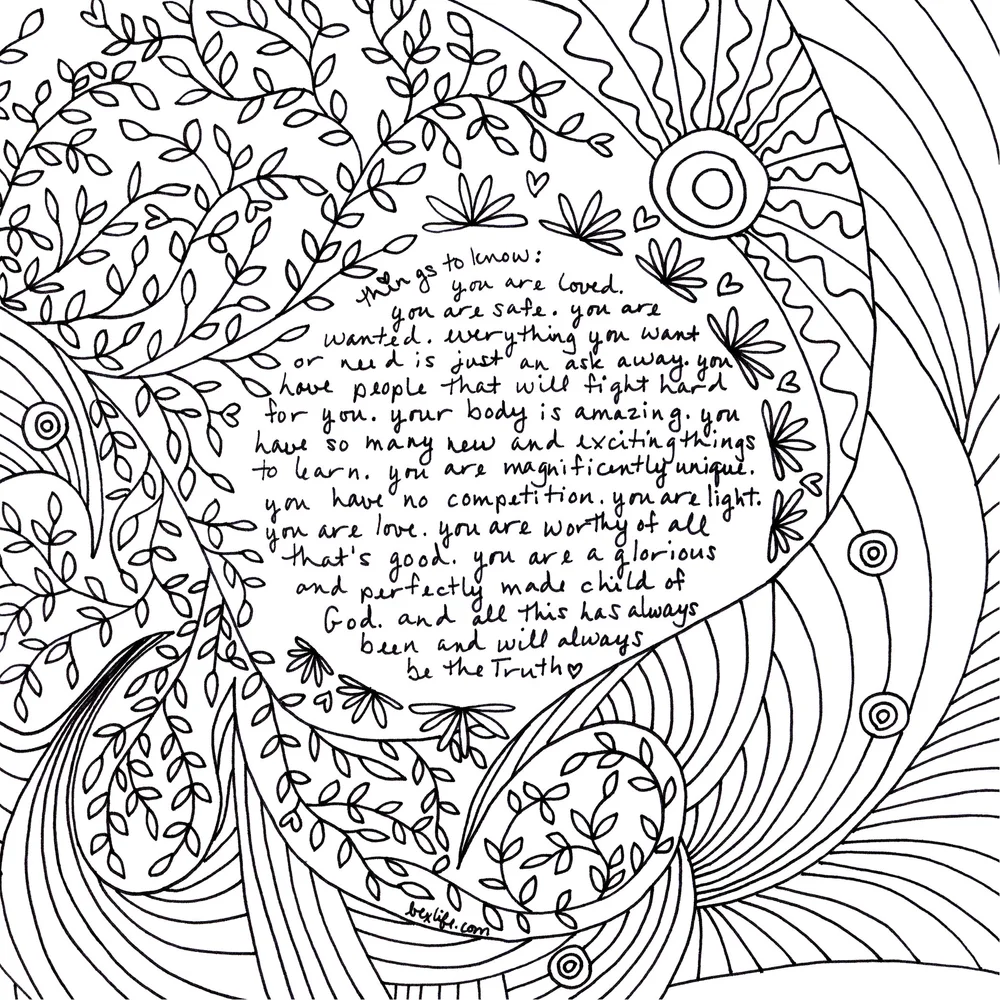 things to know:
you are loved.
you are safe. you are
wanted. everything you want
or need is just an ask away. you
have people that will fight hard
for you. your body is amazing. you
have so many new and exciting things
to learn. you are magnificently unique.
you have no competition. you are light.
you are love. you are worthy of all
that's good. you are a glorious
and perfectly made child of
God. and all this has always
been and will always
be the Truth♡
bexlife.com